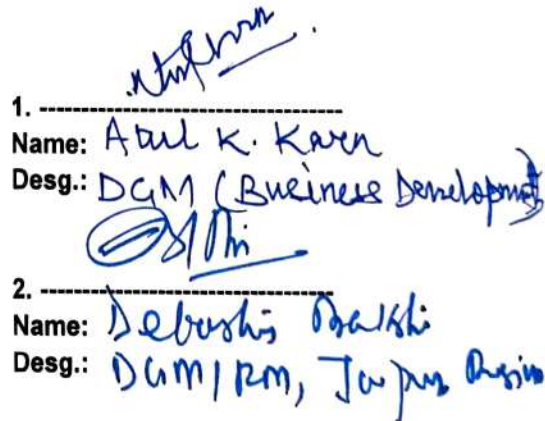 1. ----------------------------------
Name: Atul K. Karn
Desg.: DGM (Business Development)
2. ----------------------------------
Name: Debashis Bakshi
Desg.: DGM/RM, Jaipur Region